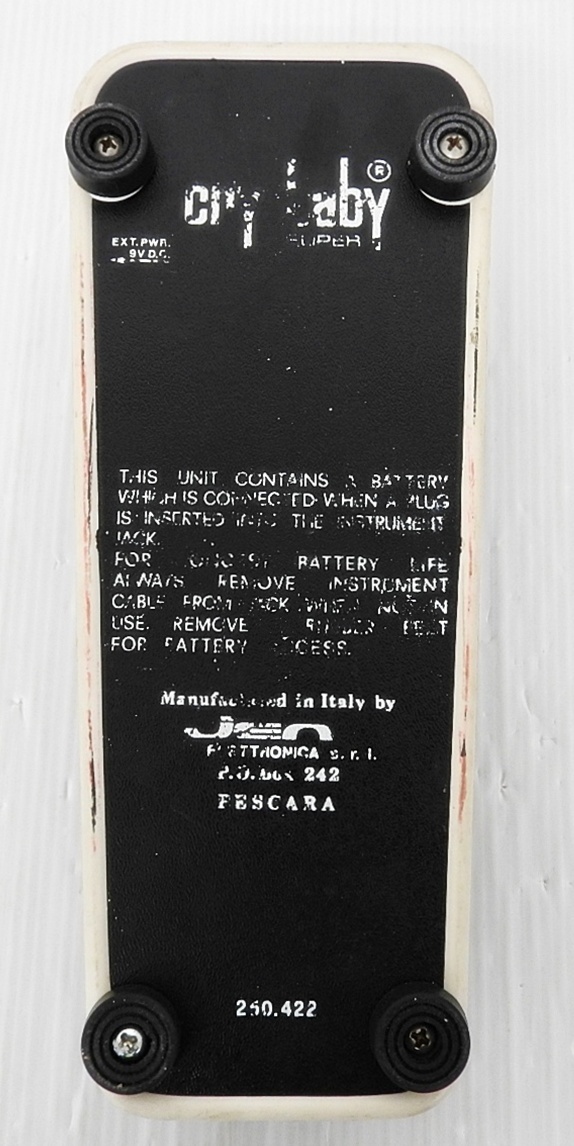 cry baby ®
SUPER
EXT. PWR.
9V D.C.
THIS UNIT CONTAINS A BATTERY
WHICH IS CONNECTED WHEN A PLUG
IS INSERTED INTO THE INSTRUMENT
JACK.
FOR LONGEST BATTERY LIFE
ALWAYS REMOVE INSTRUMENT
CABLE FROM JACK WHEN NOT IN
USE. REMOVE RUBBER FEET
FOR BATTERY ACCESS.
Manufactured in Italy by
Jen
ELETTRONICA s.r.l.
P.O. box 242
PESCARA
250.422